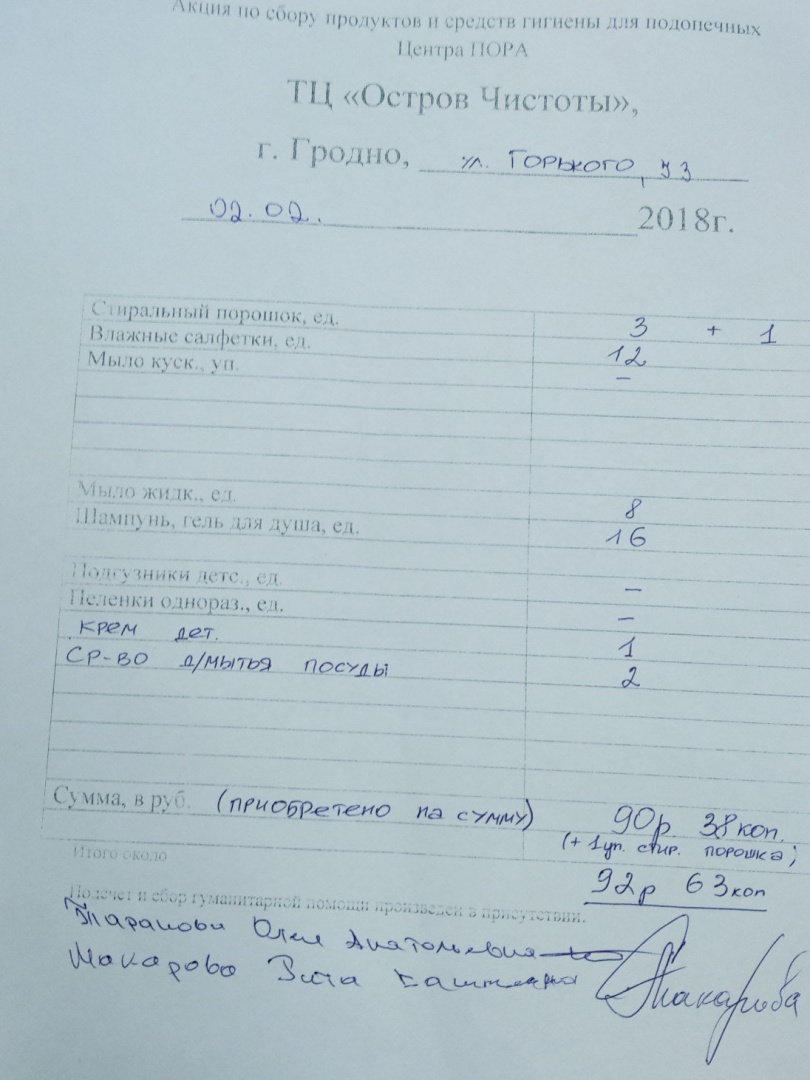 Акция по сбору продуктов и средств гигиены для подопечных
Центра ПОРА
ТЦ «Остров Чистоты»,
г. Гродно, ул. Горького,
02.02. 2018г.
Стиральный порошок, ед. 3 + 1
Влажные салфетки, ед. 12
Мыло куск., уп. –
Мыло жидк., ед. 8
Шампунь, гель для душа, ед. 16
Подгузники детс., ед. –
Пеленки однораз., ед. –
крем дет. 1
ср-во д/мытья посуды 2
Сумма, в руб. (приобретено на сумму) 90р. 38коп.
(+ 1уп. стир. порошка;
Итого около 92р 63коп
Подсчет и сбор гуманитарной помощи произведен в присутствии:
Макарова